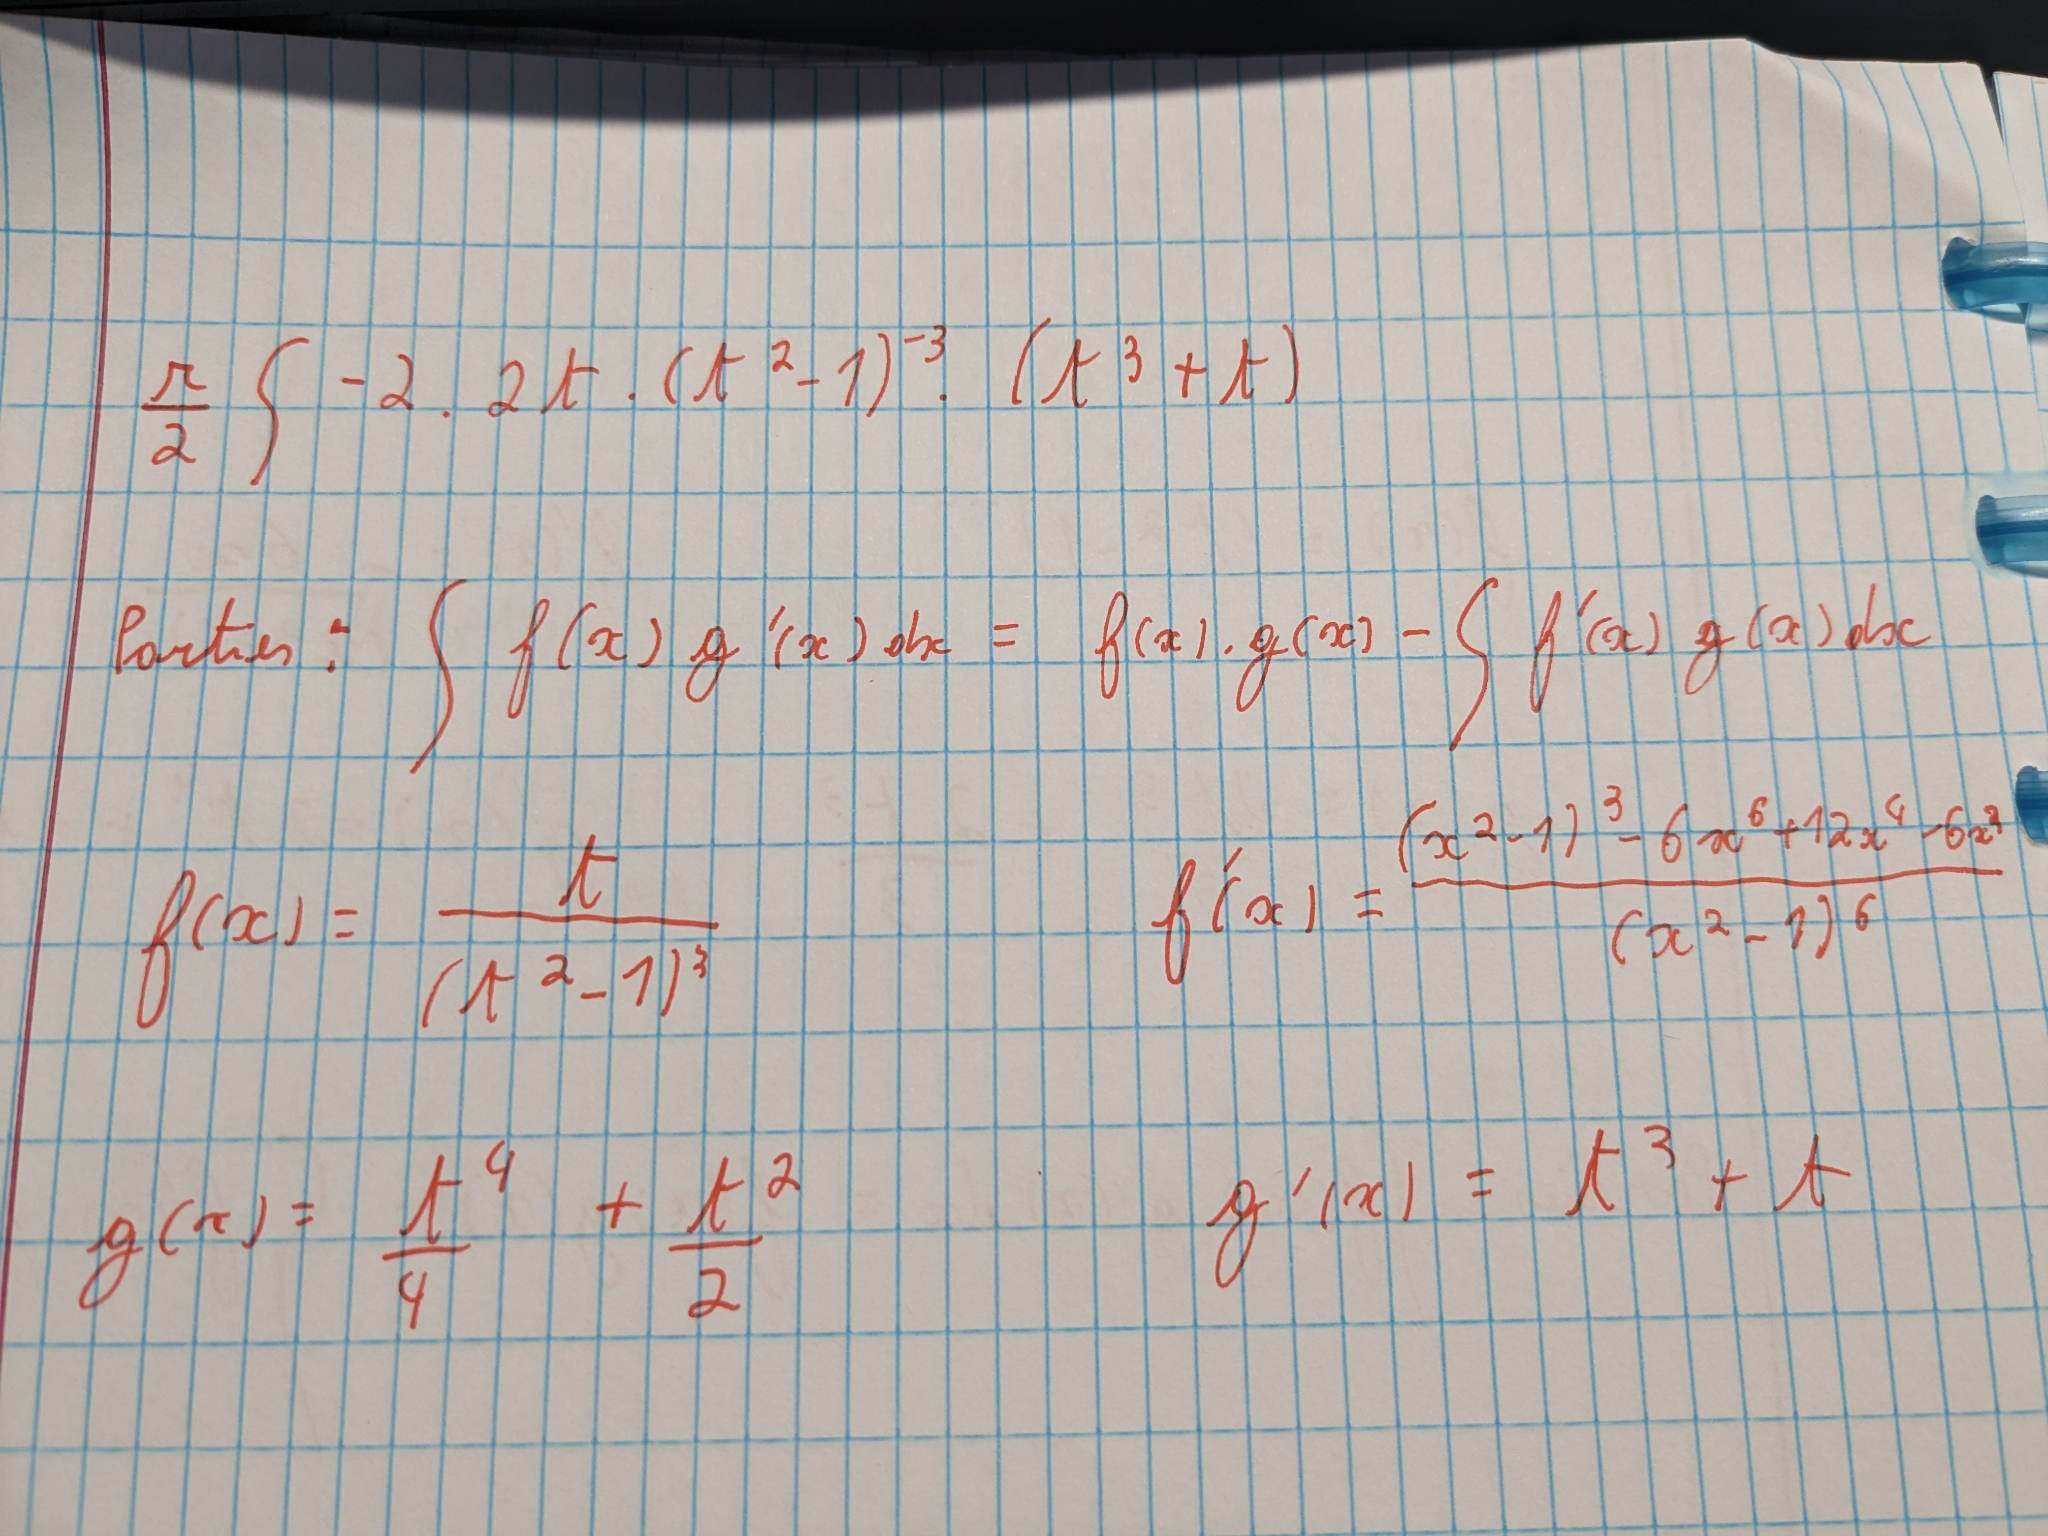 r/2 ∫ -2 . 2t . (t²-1)⁻³ . (t³ + t)
Parties : ∫ f(x) g'(x) dx = f(x) . g(x) - ∫ f'(x) g(x) dx
f(x) = t/(t²-1)³ f'(x) = ((x²-1)³ - 6x⁶ + 12x⁴ - 6x²)/(x²-1)⁶
g(x) = t⁴/4 + t²/2 g'(x) = t³ + t